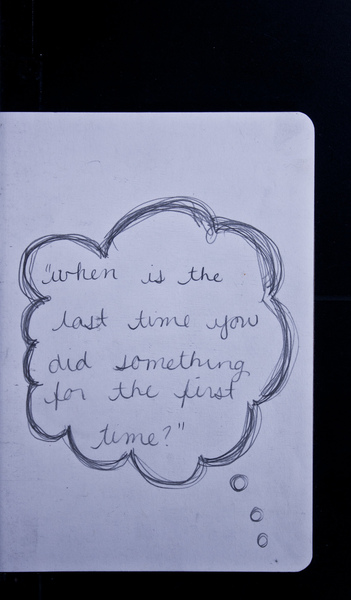 "when is the
last time you
did something
for the first
time?"